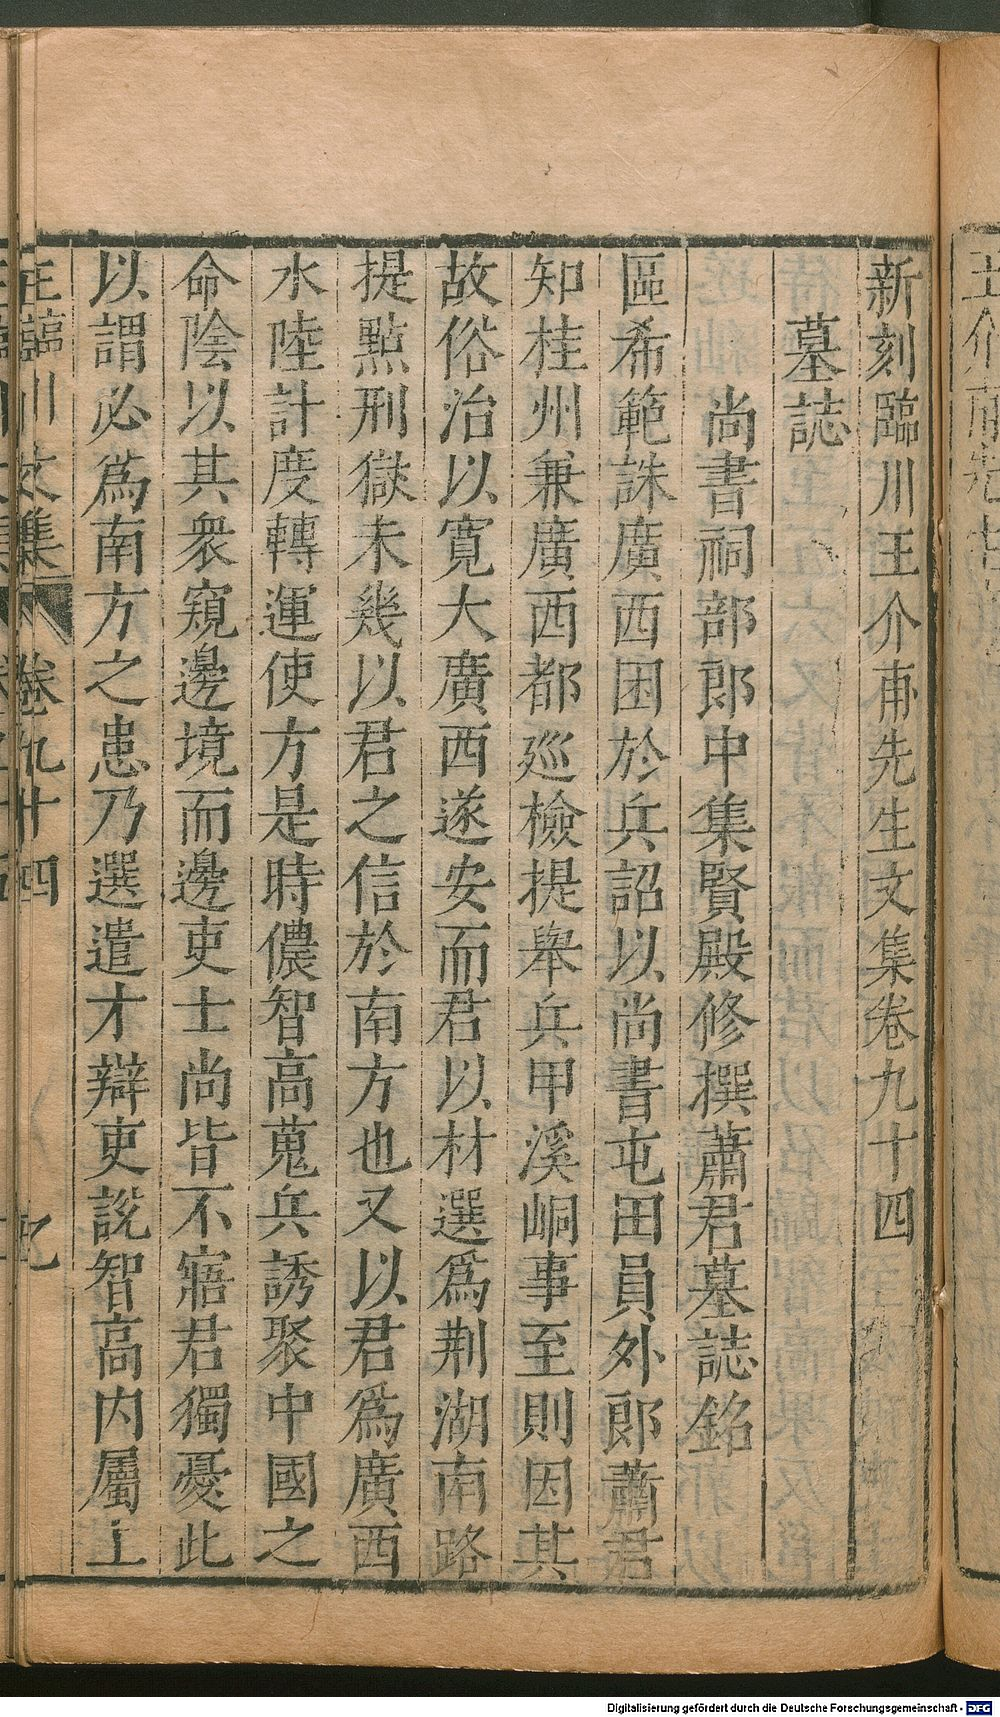 新刻臨川王介甫先生文集卷九十四
墓誌
尚書祠部郎中集賢殿修撰蕭君墓誌銘
區希範誅廣西困於兵詔以尚書屯田員外郎蕭君
知桂州兼廣西都巡檢提舉兵甲溪峒事至則因其
故俗治以寬大廣西遂安而君以材選爲荆湖南路
提點刑獄未幾以君之信於南方也又以君爲廣西
水陸計度轉運使方是時儂智高蒐兵誘聚中國之
命陰以其衆窺邊境而邊吏士尚皆不寤君獨憂此
以謂必爲南方之患乃選遣才辯吏說智高内屬上
王臨川文集
卷九十四
Digitalisierung gefördert durch die Deutsche Forschungsgemeinschaft - DFG